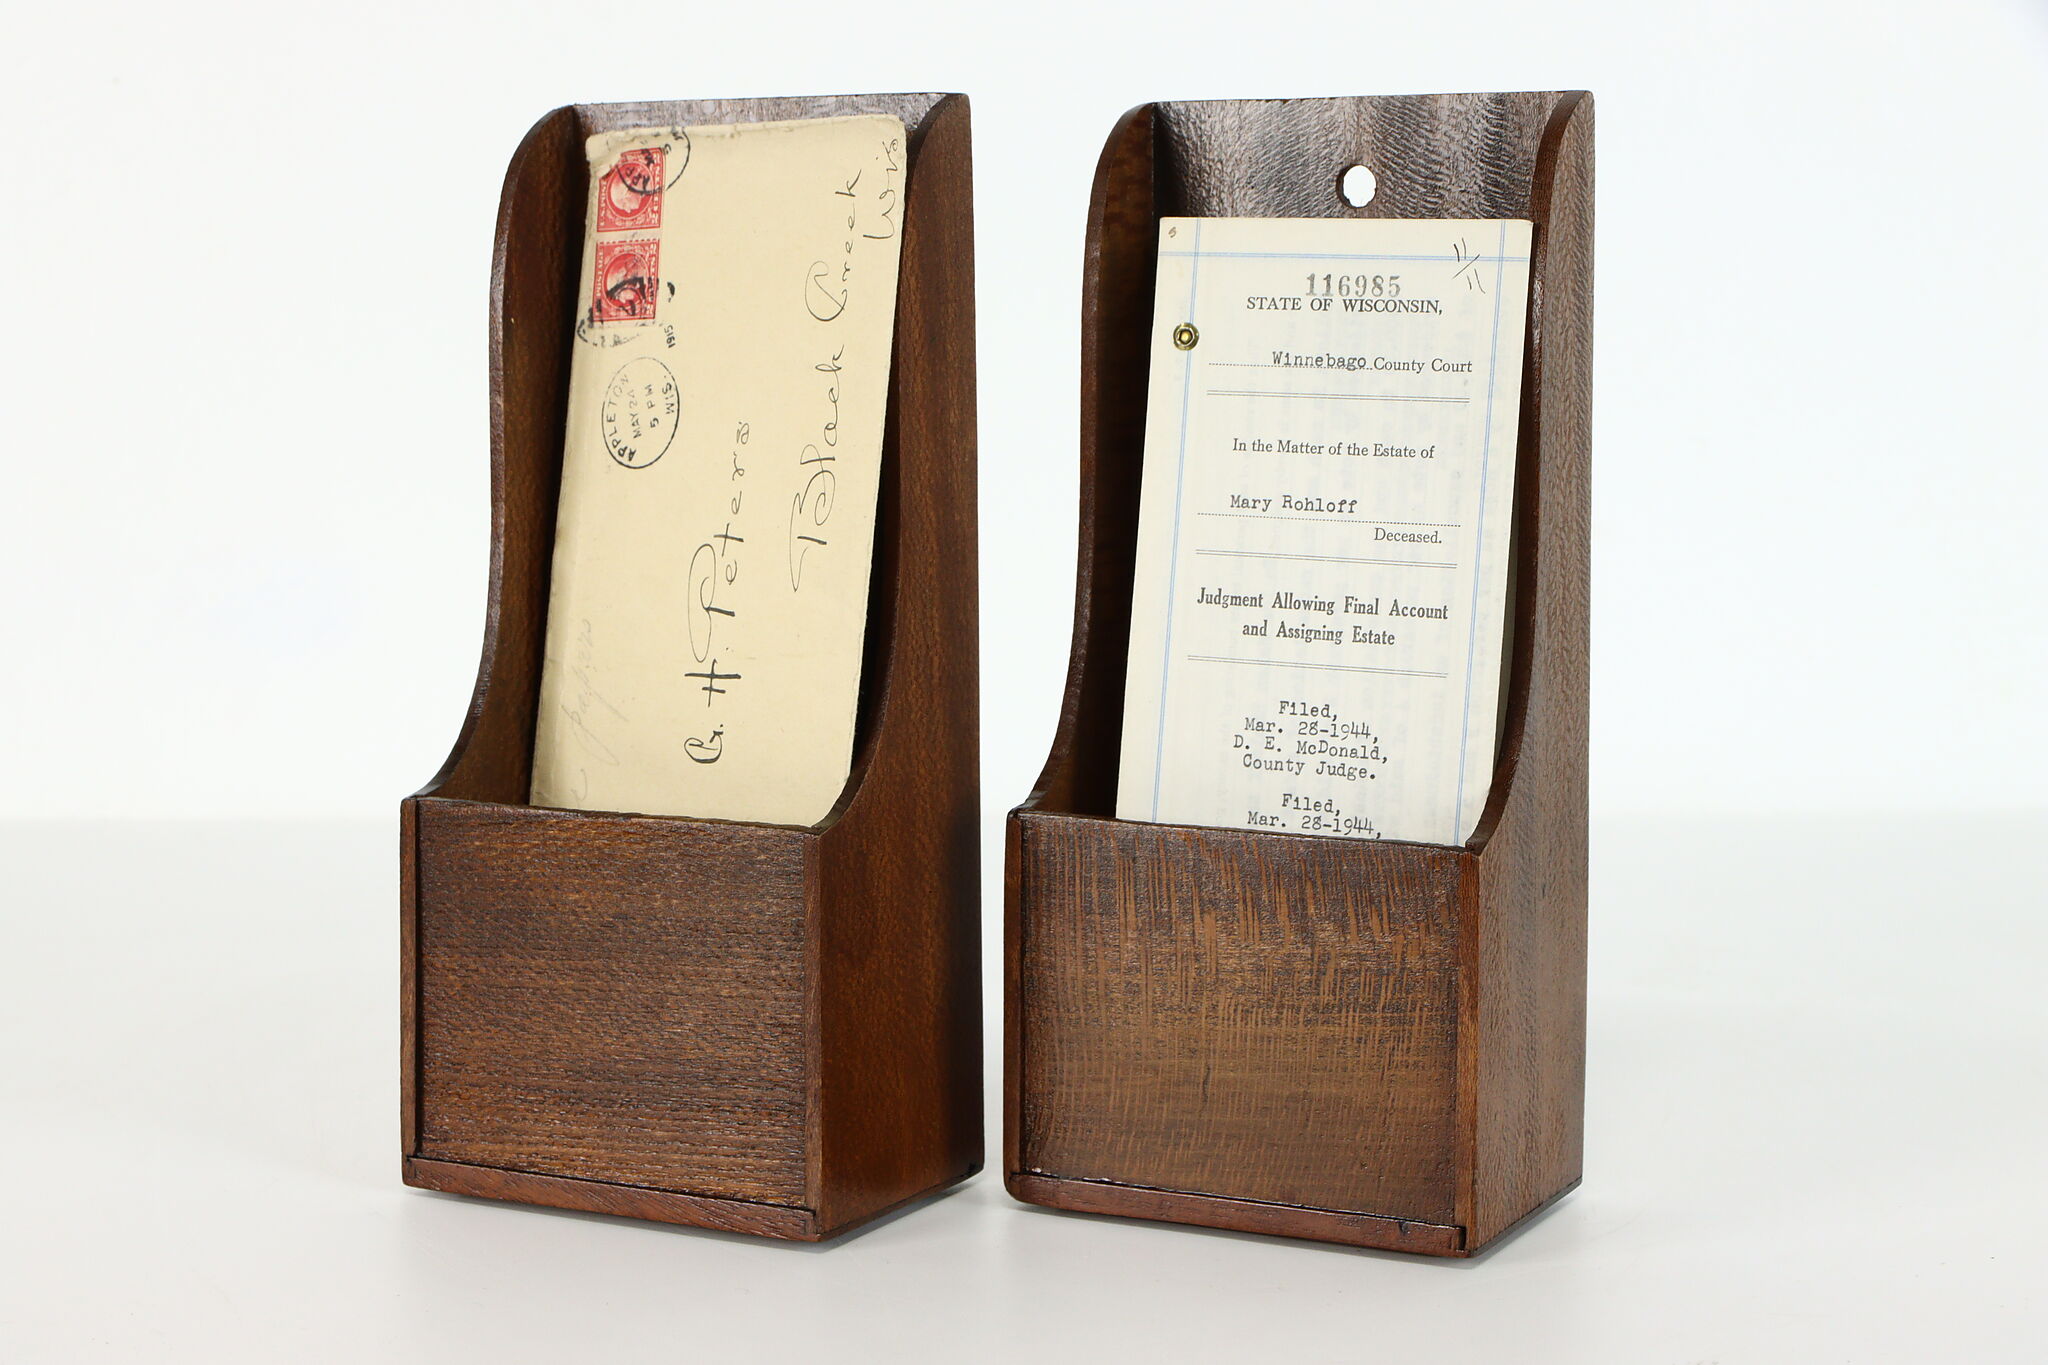 G. H. Peters
Black Creek
Wis
APPLETON
WIS.
MAY 24
5 PM
1915
papers
116985
STATE OF WISCONSIN,
Winnebago County Court
In the Matter of the Estate of
Mary Rohloff
Deceased.
Judgment Allowing Final Account
and Assigning Estate
Filed,
Mar. 28-1944,
D. E. McDonald,
County Judge.
Filed,
Mar. 28-1944,